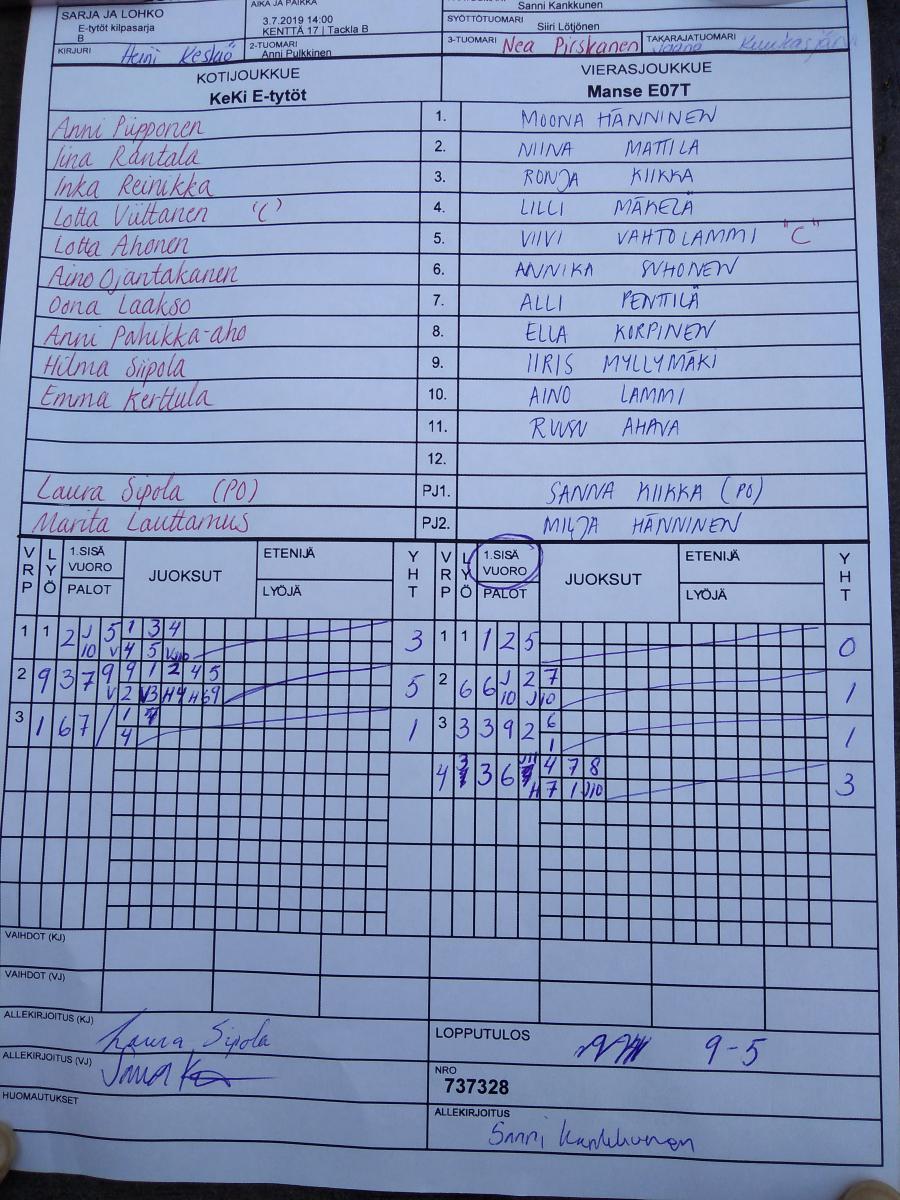 SARJA JA LOHKO
E-tytöt kilpasarja
B
AIKA JA PAIKKA
3.7.2019 14:00
KENTTÄ 17 | Tackla B
Sanni Kankkunen
SYÖTTÖTUOMARI
Siiri Lötjönen
KIRJURI Heini Keskiö
2-TUOMARI
Anni Pulkkinen
3-TUOMARI Nea Pirskanen
TAKARAJATUOMARI
KOTIJOUKKUE
KeKi E-tytöt
VIERASJOUKKUE
Manse E07T
Anni Piipponen 1. MOONA HÄNNINEN
Iina Rantala 2. NIINA MATTILA
Inka Reinikka 3. RONJA KIIKKA
Lotta Viiltanen "C" 4. LILLI MÄKELÄ
Lotta Ahonen 5. VIIVI VAHTOLAMMI "C"
Aino Ojantakanen 6. ANNIKA SUHONEN
Oona Laakso 7. ALLI PENTTILÄ
Anni Pahikka-aho 8. ELLA KORPINEN
Hilma Siipola 9. IIRIS MYLLYMÄKI
Emma Kerttula 10. AINO LAMMI
11. RUUSU AHAVA
12.
Laura Sipola (PO) PJ1. SANNA KIIKKA (PO)
Marita Lauttamus PJ2. MILJA HÄNNINEN
VRP LYÖ 1.SISÄ VUORO PALOT JUOKSUT ETENIJÄ LYÖJÄ YHT VRP LYÖ 1.SISÄ VUORO PALOT JUOKSUT ETENIJÄ LYÖJÄ YHT
1 1 2 J10 5 1 3 4 3 1 1 1 2 5 0
V4 5
2 9 3 7 9 9 1 2 4 5 5 2 6 6 J10 2 7 1
V2 V3 H4 H6 9 J10
3 1 6 7 / 1 1 3 3 3 9 2 6 1
4 1
4 3 6 4 7 8 3
H7 1 J10
VAIHDOT (KJ)
VAIHDOT (VJ)
ALLEKIRJOITUS (KJ) Laura Sipola
LOPPUTULOS 9-5
ALLEKIRJOITUS (VJ)
NRO
737328
HUOMAUTUKSET
ALLEKIRJOITUS
Sanni Kankkunen